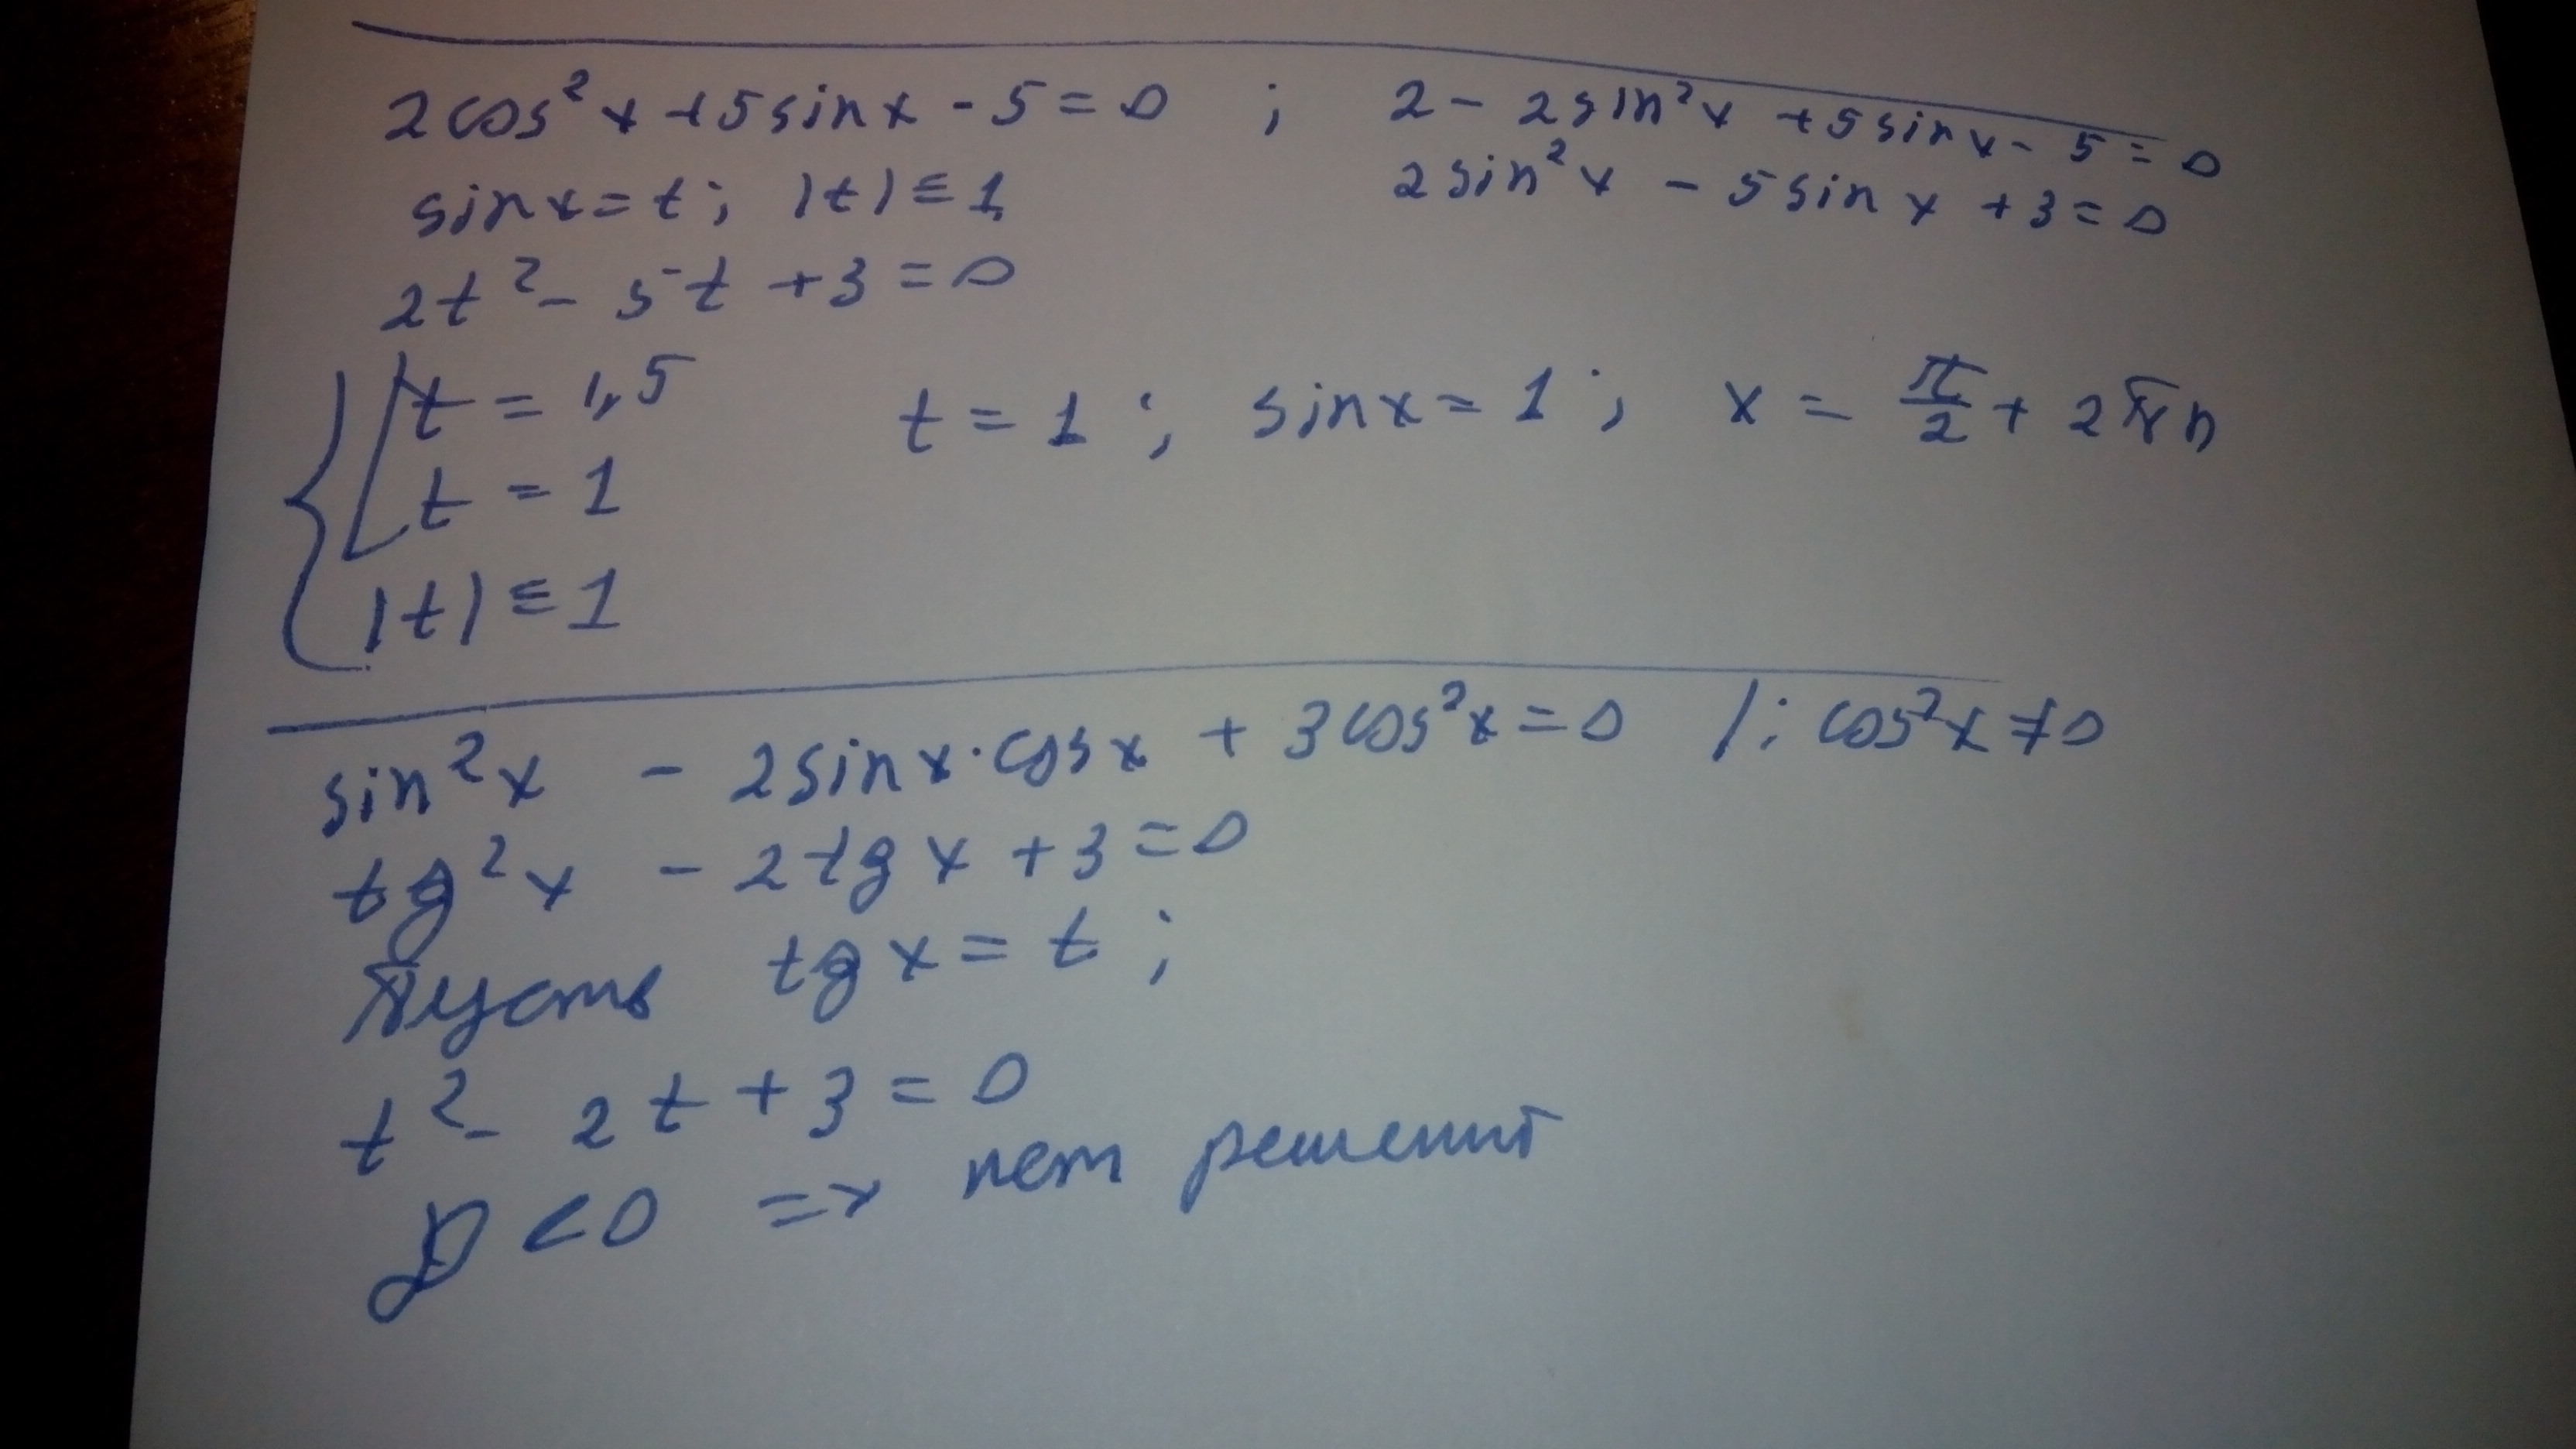 2cos²x + 5sinx - 5 = 0 ; 2 - 2sin²x + 5sinx - 5 = 0
sinx = t; |t| ≤ 1 2sin²x - 5sinx + 3 = 0
2t² - 5t + 3 = 0
t = 1,5
t = 1 ; sinx = 1 ; x = π/2 + 2πn
t = 1
|t| ≤ 1
sin²x - 2sinx·cosx + 3cos²x = 0 /: cos²x ≠ 0
tg²x - 2tgx + 3 = 0
Пусть tgx = t ;
t² - 2t + 3 = 0
D < 0 => нет решений